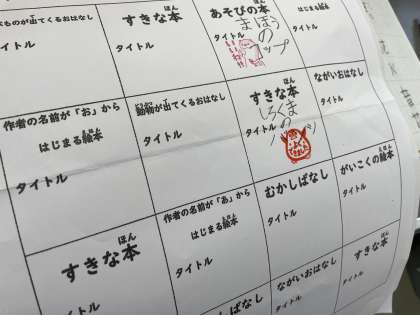 べものが出てくるおはなし
タイトル
すきな本
タイトル
あそびの本
タイトル
まほうの
コップ
はじまる絵本
タイトル
作者の名前が「お」から
はじまる絵本
タイトル
動物が出てくるおはなし
タイトル
すきな本
タイトル
しろくまの
パンツ
ながいおはなし
タイトル
すきな本
タイトル
作者の名前が「あ」から
はじまる絵本
タイトル
むかしばなし
タイトル
がいこくの絵本
タイトル
しばなし
ながいおはなし
タイトル
すきな本
タイトル